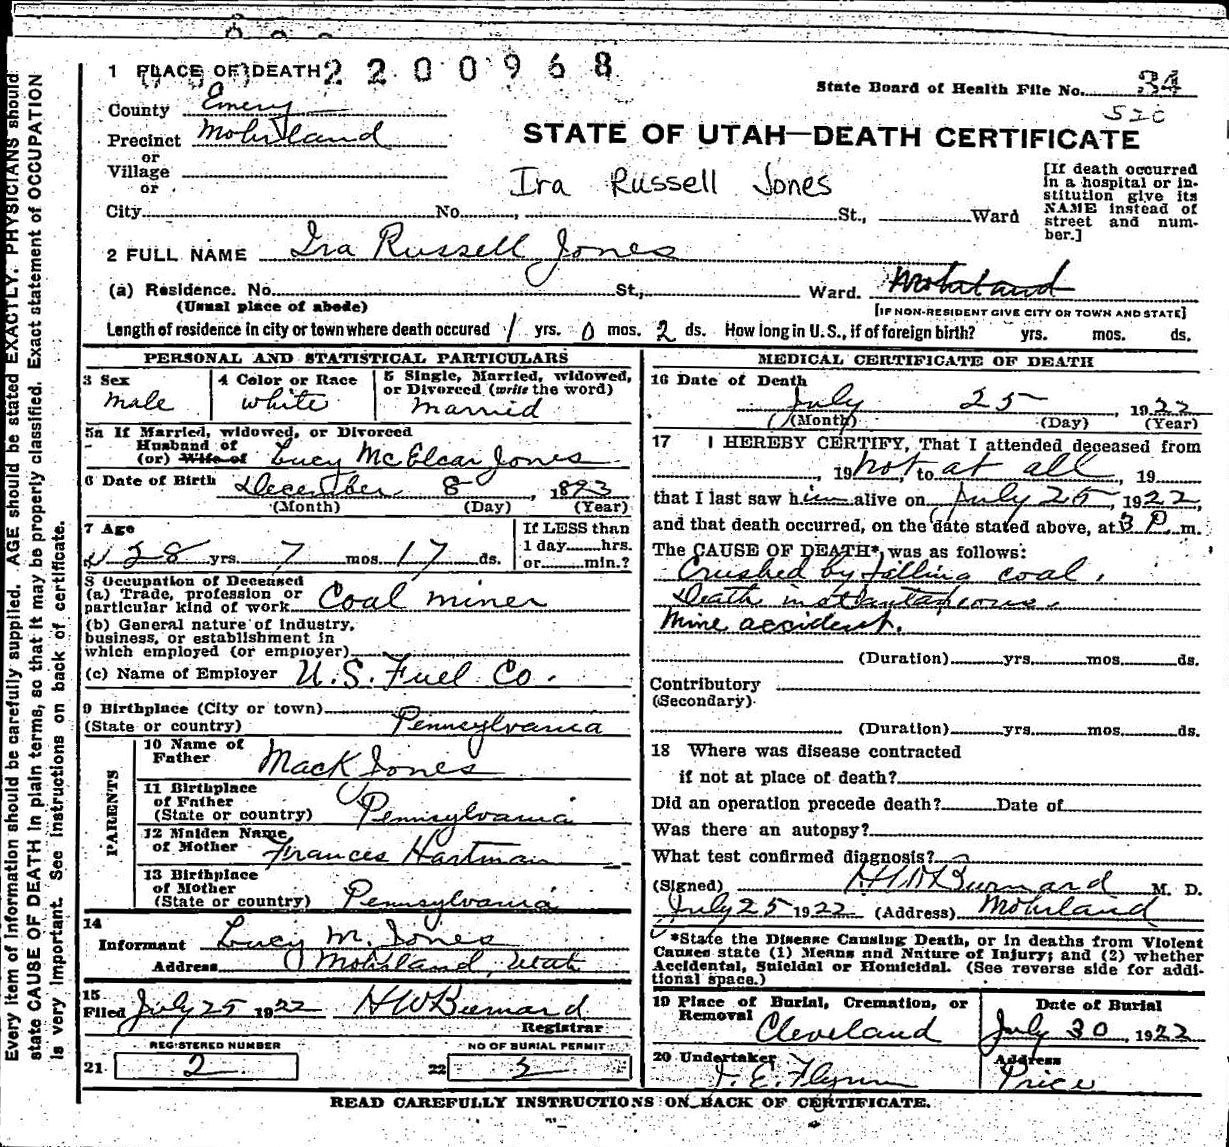 1 PLACE OF DEATH 2200968
State Board of Health File No. 34
County Emery
520
Precinct Mohrland
STATE OF UTAH—DEATH CERTIFICATE
or
Village
or
Ira Russell Jones
[If death occurred in a hospital or institution give its NAME instead of street and number.]
City No. St., Ward
2 FULL NAME Ira Russell Jones
(a) Residence. No. St., Ward. Mohrland
(Usual place of abode) [IF NON-RESIDENT GIVE CITY OR TOWN AND STATE]
Length of residence in city or town where death occured 1 yrs. 0 mos. 2 ds. How long in U.S., if of foreign birth? yrs. mos. ds.
PERSONAL AND STATISTICAL PARTICULARS
3 Sex
male
4 Color or Race
white
5 Single, Married, widowed,
or Divorced (write the word)
married
5a If Married, widowed, or Divorced
Husband of
(or) Wife of Lucy Jones
6 Date of Birth December 8, 1893
(Month) (Day) (Year)
7 Age
28 yrs. 7 mos. 17 ds.
If LESS than
1 day hrs.
or min.?
8 Occupation of Deceased
(a) Trade, profession or
particular kind of work Coal miner
(b) General nature of industry,
business, or establishment in
which employed (or employer)
(c) Name of Employer U.S. Fuel Co.
9 Birthplace (City or town)
(State or country) Pennsylvania
PARENTS
10 Name of
Father Mack Jones
11 Birthplace
of Father
(State or country) Pennsylvania
12 Maiden Name
of Mother Frances Hartman
13 Birthplace
of Mother
(State or country) Pennsylvania
14
Informant Lucy M. Jones
Address Mohrland, Utah
15
Filed July 25 1922 H W
Registrar
REGISTERED NUMBER
21 2
NO OF BURIAL PERMIT
22
MEDICAL CERTIFICATE OF DEATH
16 Date of Death
July 25, 1922
(Month) (Day) (Year)
17 I HEREBY CERTIFY, That I attended deceased from
, 19 not, to at all, 19
that I last saw him alive on July 25, 1922,
and that death occurred, on the date stated above, at 3 P. m.
The CAUSE OF DEATH*, was as follows:
Crushed by falling coal.
Death instantaneous.
Mine accident.
(Duration) yrs. mos. ds.
Contributory
(Secondary)
(Duration) yrs. mos. ds.
18 Where was disease contracted
if not at place of death?
Did an operation precede death? Date of
Was there an autopsy?
What test confirmed diagnosis?
(Signed) M. D.
July 25 1922 (Address) Mohrland
*State the Disease Causing Death, or in deaths from Violent
Causes state (1) Means and Nature of Injury; and (2) whether
Accidental, Suicidal or Homicidal. (See reverse side for addi-
tional space.)
19 Place of Burial, Cremation, or
Removal Cleveland
Date of Burial
July 30, 1922
20 Undertaker
E. Flynn
Address
Price
READ CAREFULLY INSTRUCTIONS ON BACK OF CERTIFICATE.
Every item of information should be carefully supplied. AGE should be stated EXACTLY. PHYSICIANS should
state CAUSE OF DEATH in plain terms, so that it may be properly classified. Exact statement of OCCUPATION
is very important. See instructions on back of certificate.